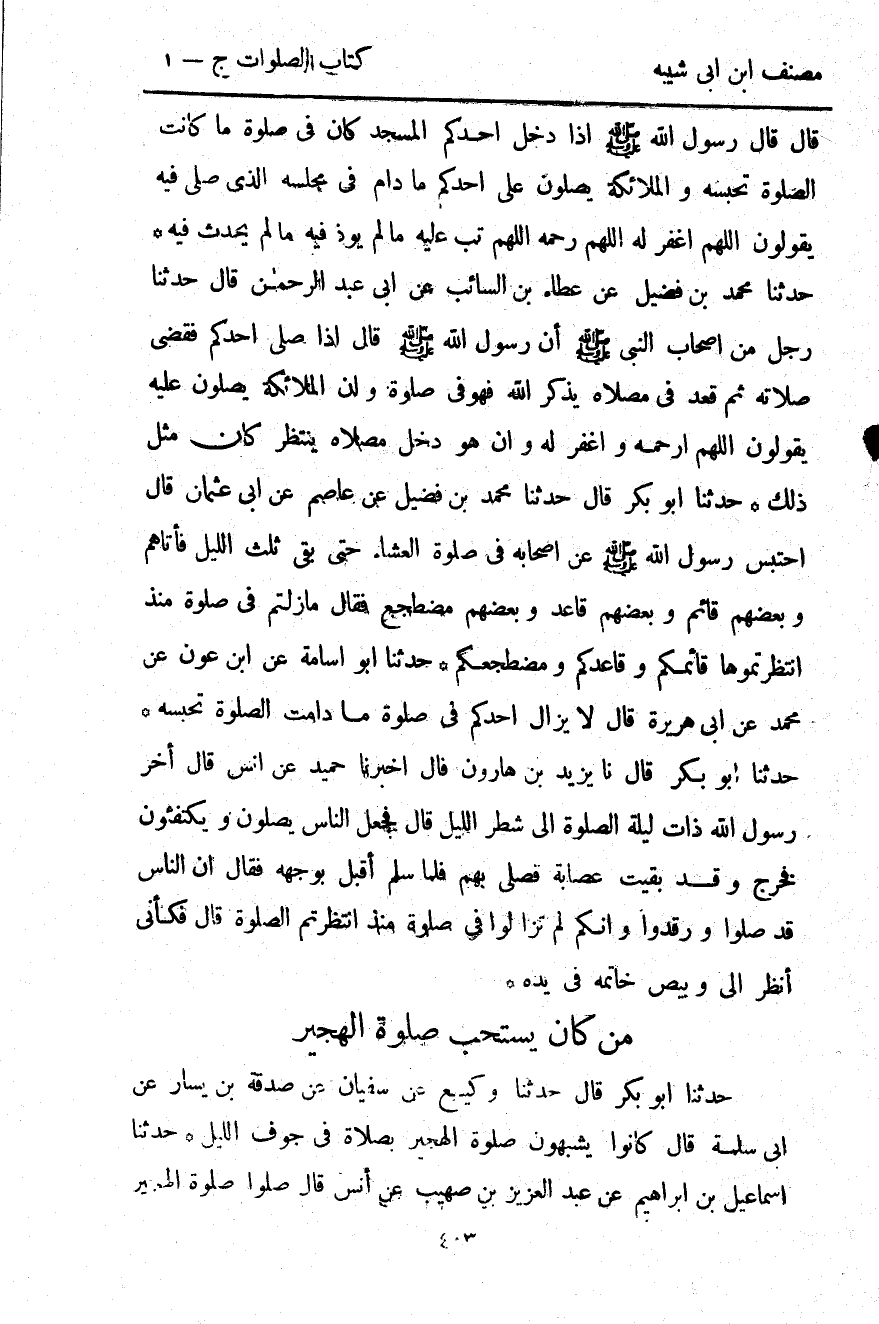 مصنف ابن ابى شيبه
كتاب الصلوات ج — ١
قال قال رسول الله ﷺ اذا دخل احدكم المسجد كان فى صلوة ما كانت
الصلوة تحبسه و الملائكة يصلون على احدكم ما دام فى مجلسه الذى صلى فيه
يقولون اللهم اغفر له اللهم رحمه اللهم تب عليه ما لم يوذ فيه ما لم يحدث فيه *
حدثنا محمد بن فضيل عن عطاء بن السائب عن ابى عبد الرحمٰن قال حدثنا
رجل من اصحاب النبى ﷺ أن رسول الله ﷺ قال اذا صلى احدكم فقضى
صلاته ثم قعد فى مصلاه يذكر الله فهوفى صلوة و ان الملائكة يصلون عليه
يقولون اللهم ارحمه و اغفر له و ان هو دخل مصلاه ينتظر كان مثل
ذلك * حدثنا ابو بكر قال حدثنا محمد بن فضيل عن عاصم عن ابى عثمان قال
احتبس رسول الله ﷺ عن اصحابه فى صلوة العشاء حتى بقى ثلث الليل فأتاهم
و بعضهم قائم و بعضهم قاعد و بعضهم مضطجع فقال مازلتم فى صلوة منذ
انتظرتموها قائمكم و قاعدكم و مضطجعكم * حدثنا ابو اسامة عن ابن عون عن
محمد عن ابى هريرة قال لا يزال احدكم فى صلوة ما دامت الصلوة تحبسه *
حدثنا ابو بكر قال نا يزيد بن هارون قال اخبرنا حميد عن انس قال أخر
رسول الله ذات ليلة الصلوة الى شطر الليل قال فجعل الناس يصلون و يكتفئون
فخرج و قد بقيت عصابة فصلى بهم فلما سلم أقبل بوجهه فقال ان الناس
قد صلوا و رقدوا و انكم لم تزالوا في صلوة منذ انتظرتم الصلوة قال فكأنى
أنظر الى و بيص خاتمه فى يده *
من كان يستحب صلوة الهجير
حدثنا ابو بكر قال حدثنا وكيع عن سفيان عن صدقة بن يسار عن
ابى سلمة قال كانوا يشبهون صلوة الهجير بصلاة فى جوف الليل * حدثنا
اسماعيل بن ابراهيم عن عبد العزيز بن صهيب عن أنس قال صلوا صلوة الهجير
٤٠٣